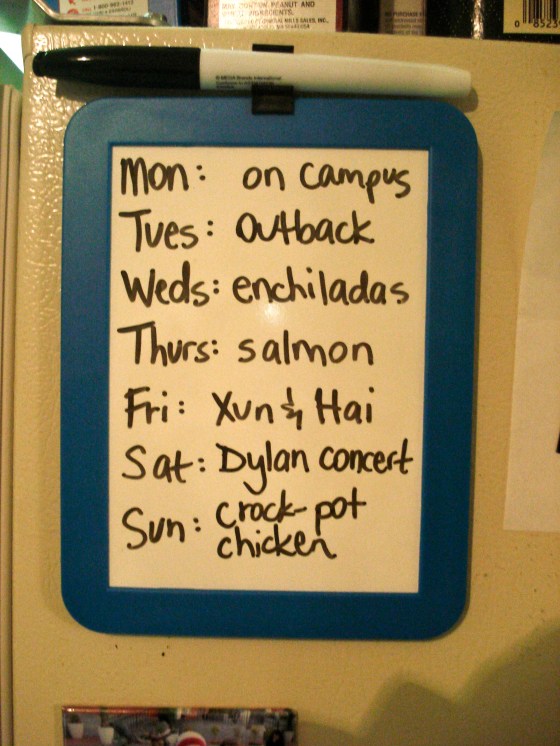 Mon: on campus
Tues: Outback
Weds: enchiladas
Thurs: salmon
Fri: Xun & Hai
Sat: Dylan concert
Sun: crock-pot
chicken